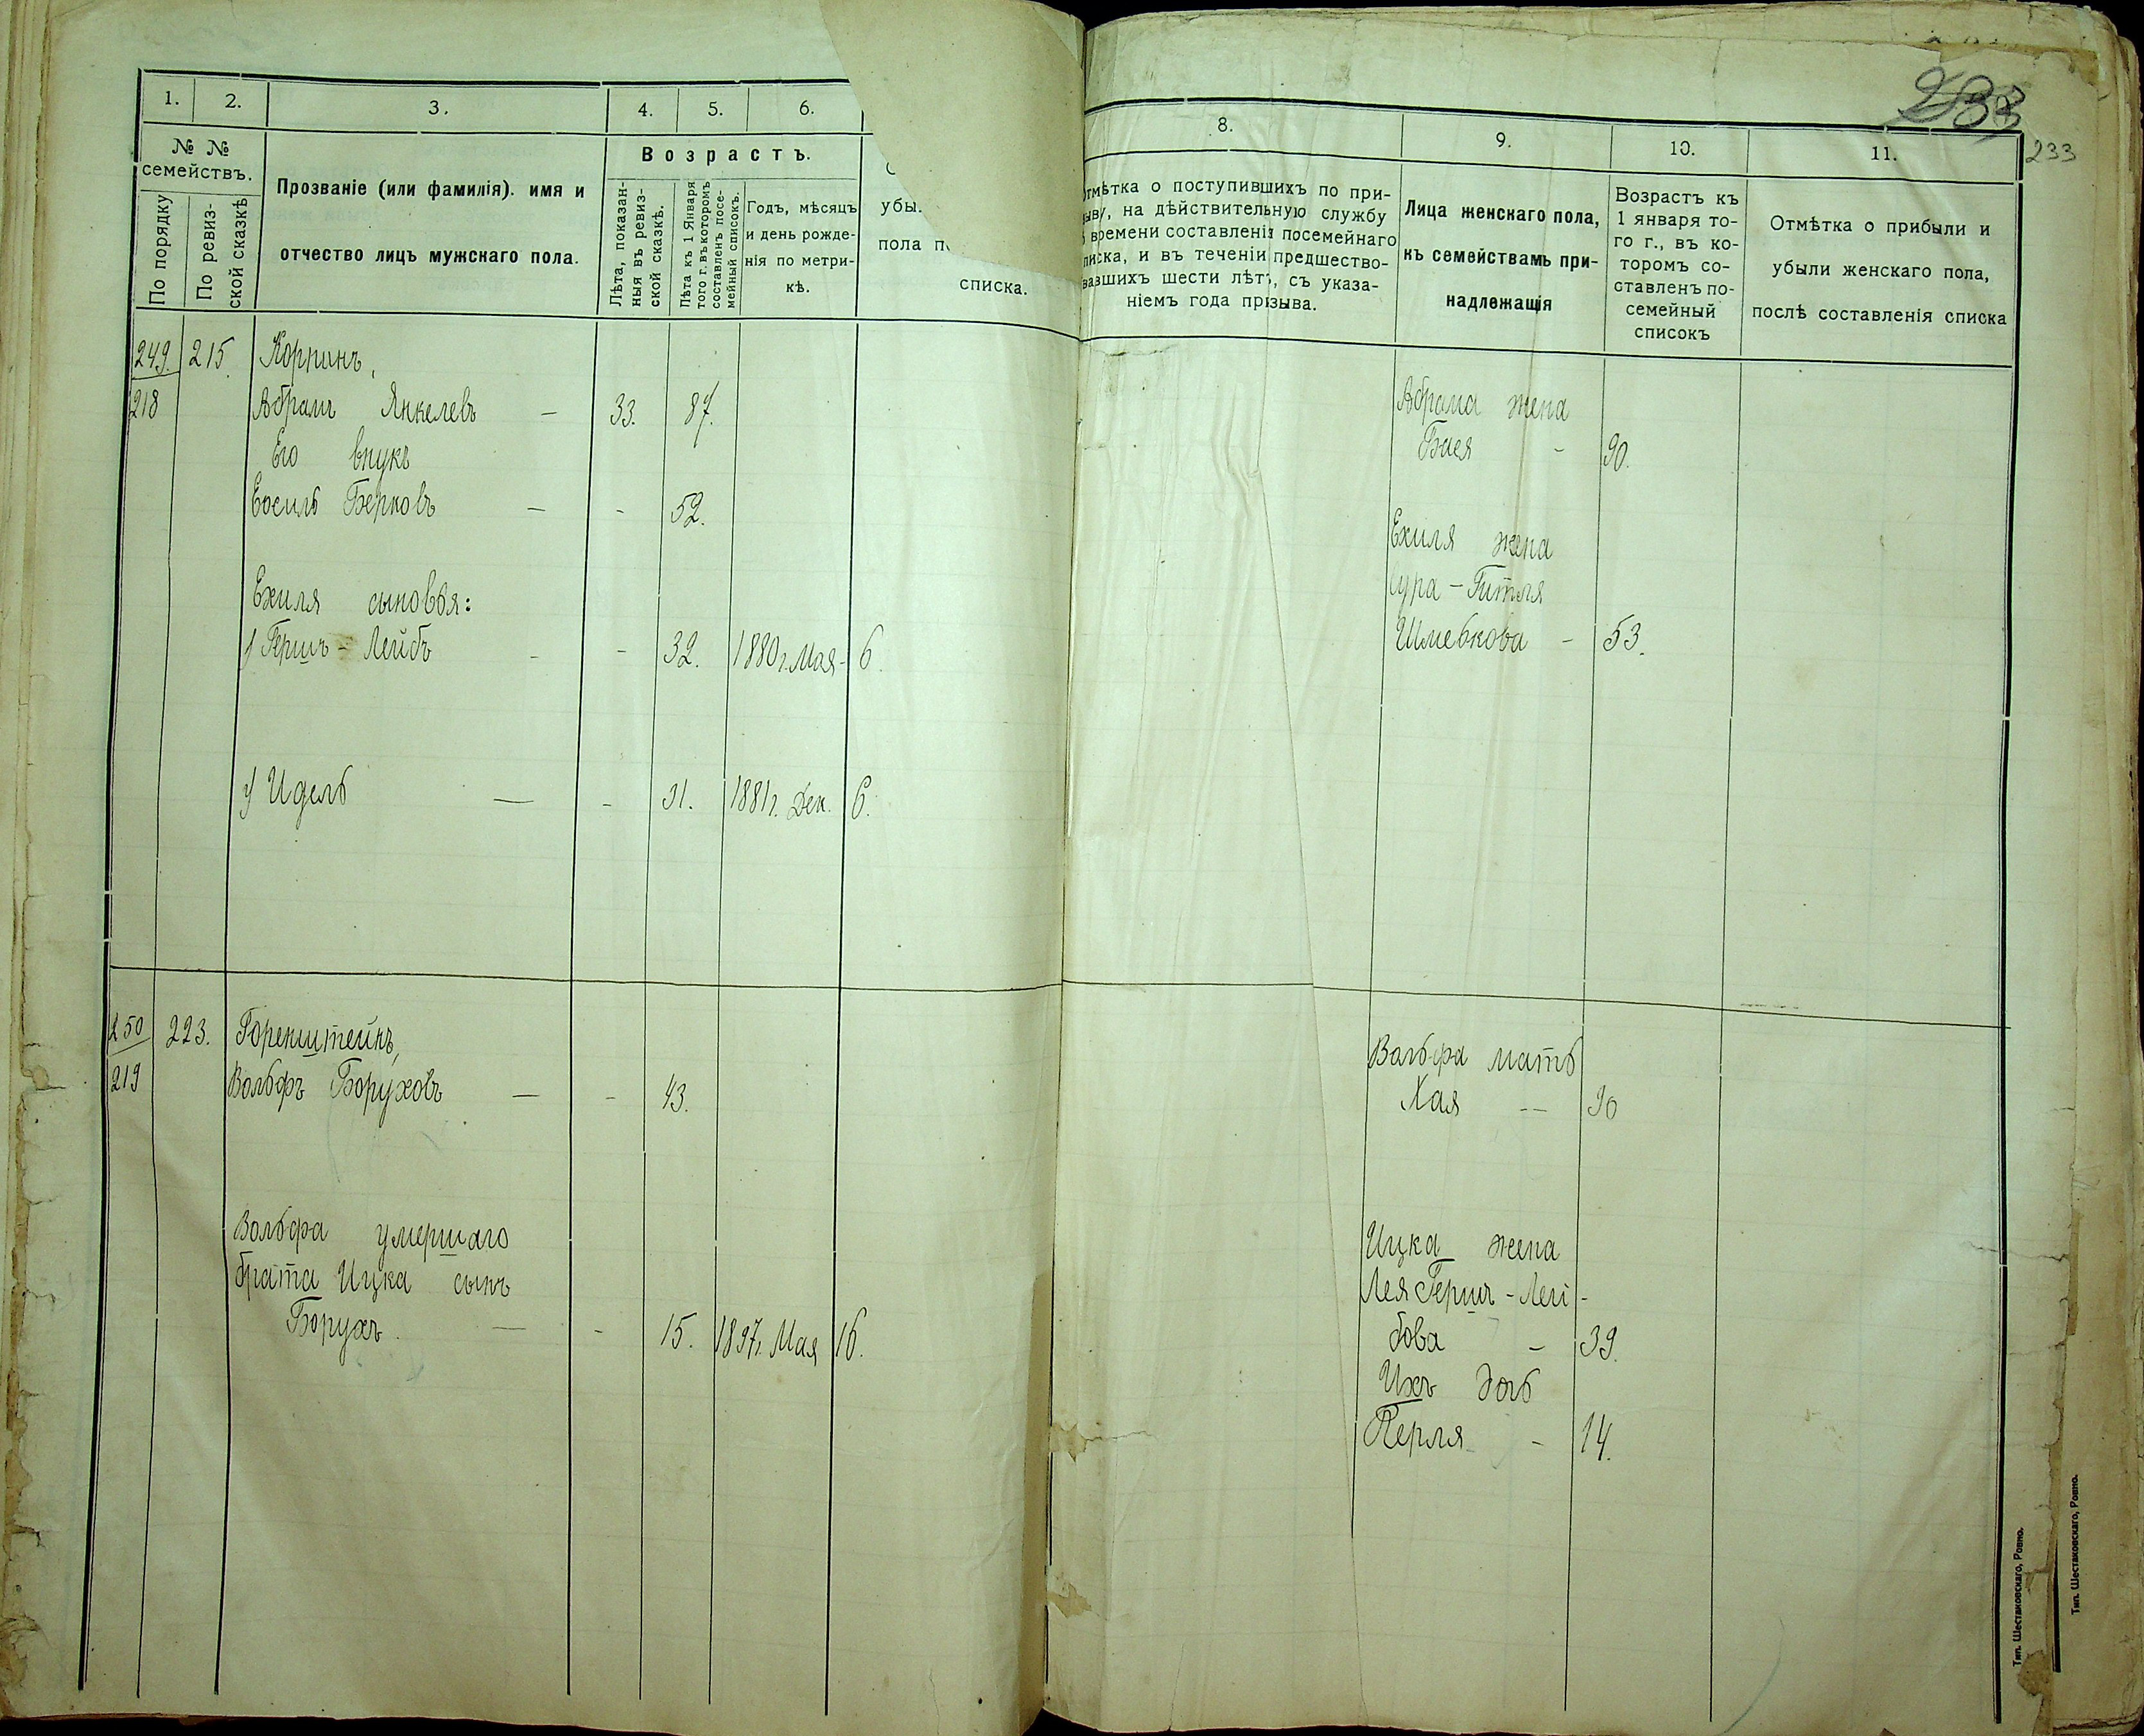 1. 2. 3. 4. 5. 6.
№ № семействъ.
По порядку
По ревиз-
ской сказкѣ
Прозваніе (или фамилія). имя и
отчество лицъ мужскаго пола.
Возрастъ.
Лѣта, показан-
ныя въ ревиз-
ской сказкѣ.
Лѣта къ 1 Января
того г. въ которомъ
составленъ посе-
мейный списокъ.
Годъ, мѣсяцъ
и день рожде-
нія по метри-
кѣ.
убы.
пола
списка.
249. 215. Корпинъ,
218 Абрамъ Янкелевъ — 33. 87.
Его внукъ
Ехиль Берковъ — - 52.
Ехиля сыновья:
1) Гершъ-Лейбъ - - 32. 1880 г. Мая - 6.
2) Идель — - 31. 1881 г. Дек. 6.
250 223. Горенштейнъ,
219 Вольфъ Боруховъ — - 43.
Вольфа умершаго
брата Ицка сынъ
Борухъ. — - 15. 1897 г. Мая 16.
233
233
8. 9. 10. 11.
отмѣтка о поступившихъ по при-
зыву, на дѣйствительную службу
времени составленія посемейнаго
писка, и въ теченіи предшество-
вавшихъ шести лѣтъ, съ указа-
ніемъ года призыва.
Лица женскаго пола,
къ семействамъ при-
надлежащія
Возрастъ къ
1 января то-
го г., въ ко-
торомъ со-
ставленъ по-
семейный
списокъ
Отмѣтка о прибыли и
убыли женскаго пола,
послѣ составленія списка
Абрама жена
Бася - 90.
Ехиля жена
Сура-Гитля
Шмевкова - 53.
Вольфа мать
Хая — 90
Ицка жена
Лея Гершъ-Лей-
бова - 39.
Ихъ дочь
Перля - 14.
Тип. Шестаковскаго, Ровно.
Тип. Шестаковскаго, Ровно.